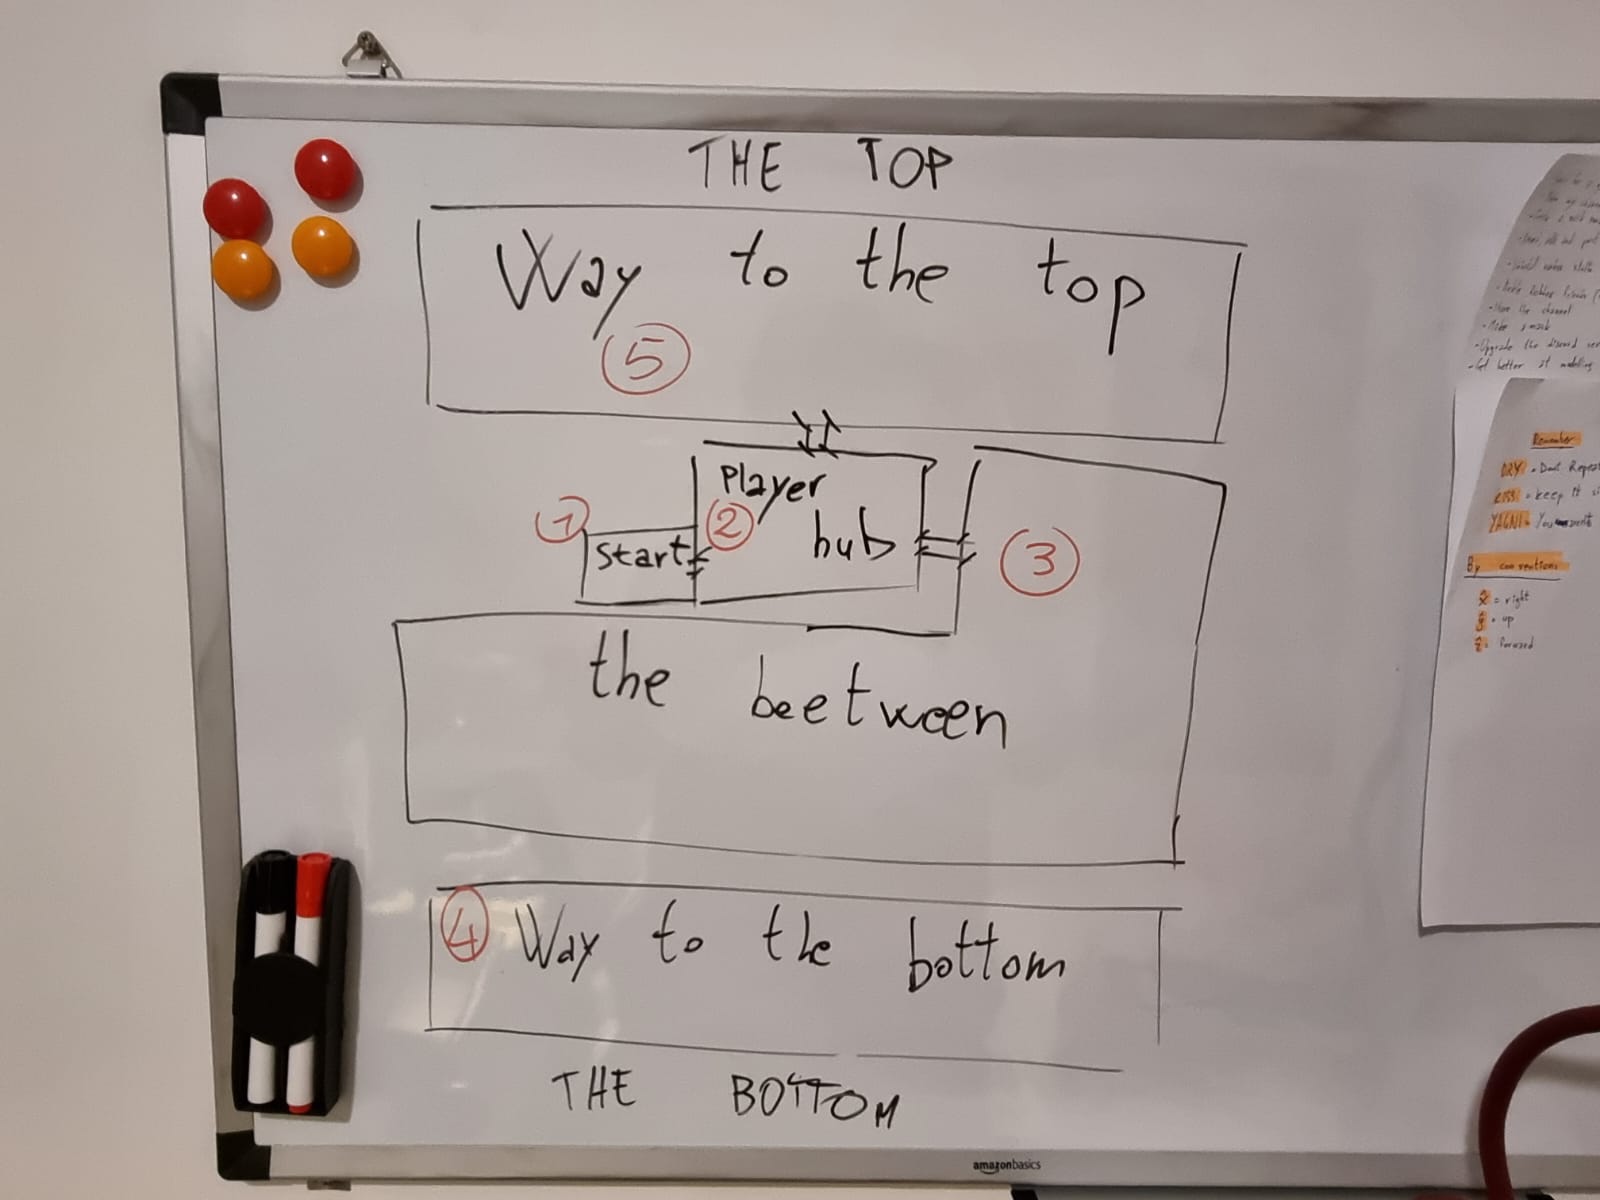 THE TOP
Way to the top
5
Player
hub
1
2
start
3
the beetween
4 Way to the bottom
THE BOTTOM
amazonbasics
- Have the channel
- Make
- Upgrade the discord
- Get better at modelling
Remember
DRY • Dont Repeat
KISS • keep it
YAGNI •
By conventions
x̂ = right
ŷ = up
ẑ = forward